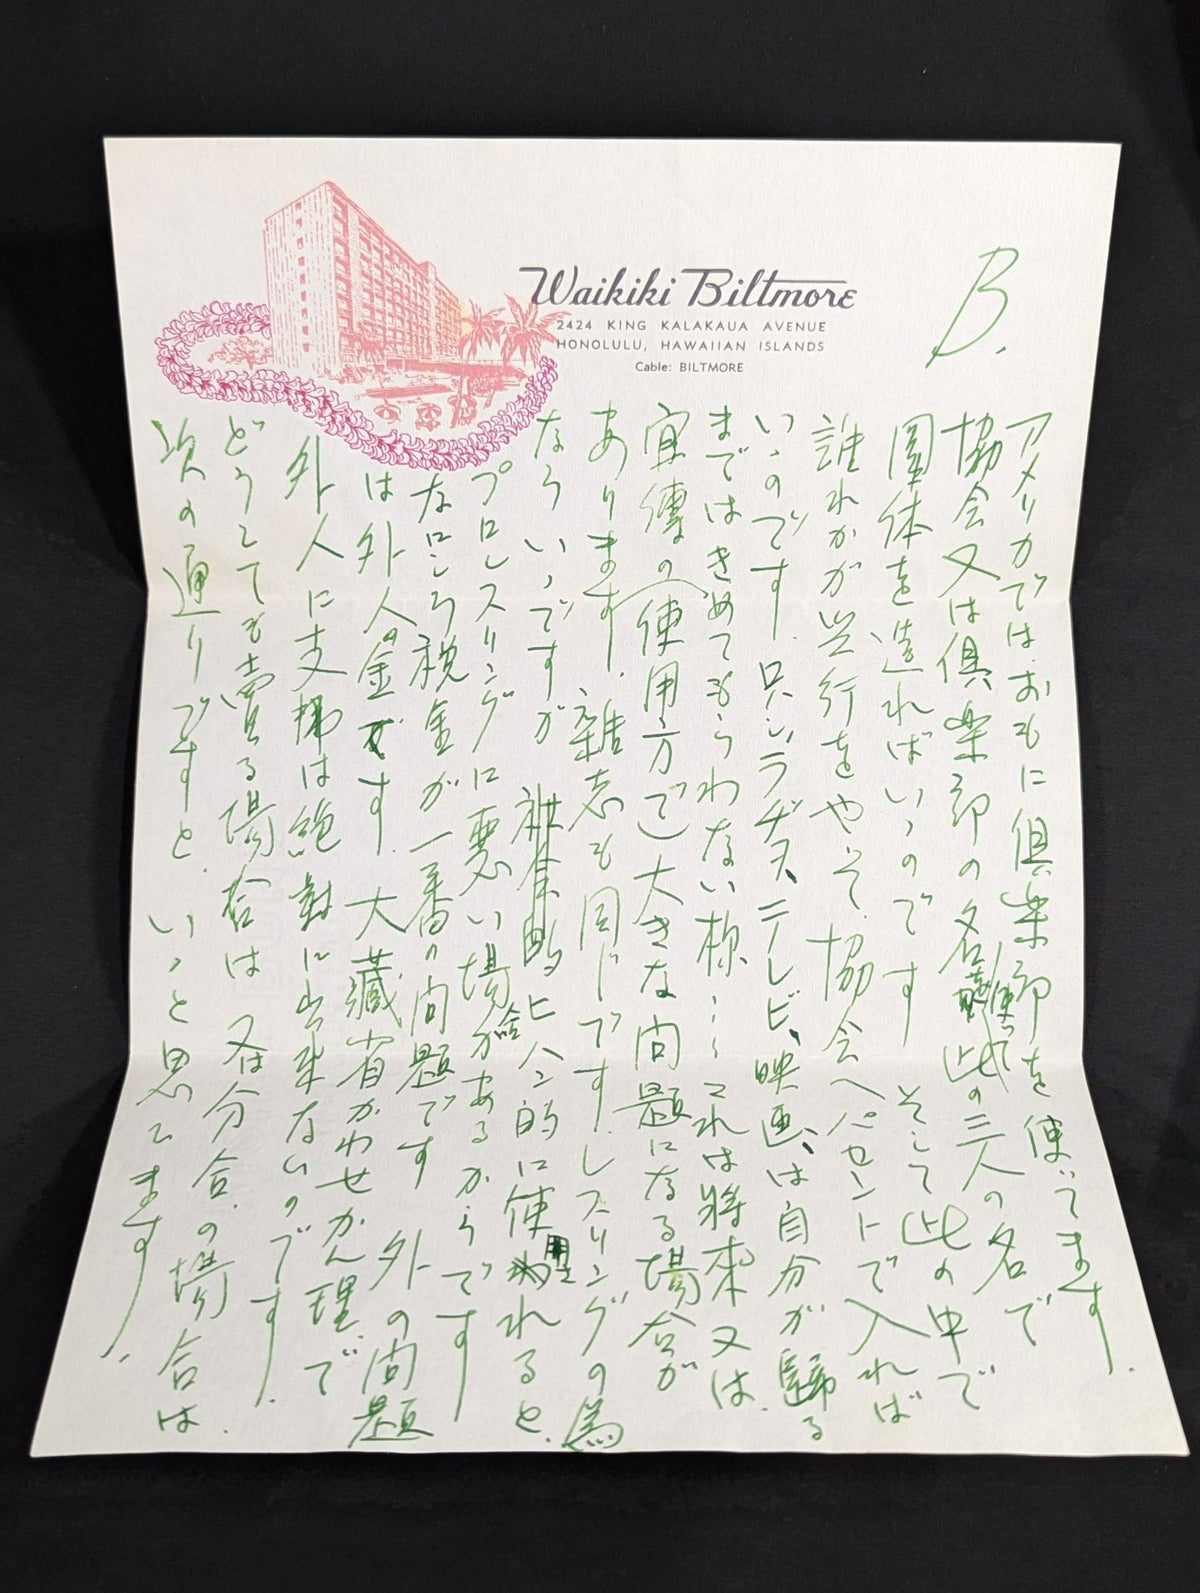 Waikiki Biltmore
2424 KING KALAKAUA AVENUE
HONOLULU, HAWAIIAN ISLANDS
Cable: BILTMORE
B.
アメリカではおもに倶楽部を使ってます.
協会又は倶楽部の名を使って此の三人の名で
團体を造ればいゝのです そして此の中で
誰れかが興行をやって協会へパセントで入れば
いゝのです. 只しラヂオ、テレビ、映画、は自分が歸る
まではきめてもらわない様……これは將来又は.
宣傳の(使用方で)大きな問題になる場合が
あります. 雑志も同ドです. レスリングの為
ならいゝですが ヒハン的に使用されると.
プロレスリングに悪い場合があるからです
なロシろ税金が一番の問題です 外の問題
は外人の金です. 大藏省かわせかん理で
外人に支拂は絶対に出来ないのです.
どうしても賣る場合は 又は分合の場合は.
次の通りですと. いゝと思てます.